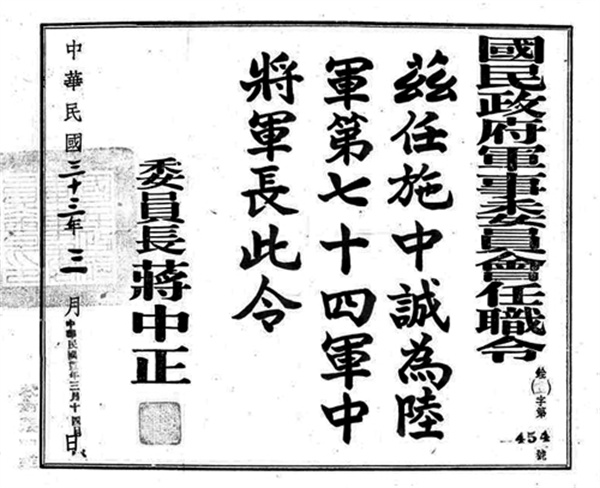 國民政府軍事委員會任職令
銓(二)字第454號
茲任施中誠為陸
軍第七十四軍中
將軍長此令
委員長蔣中正
中華民國三十三年三月 日